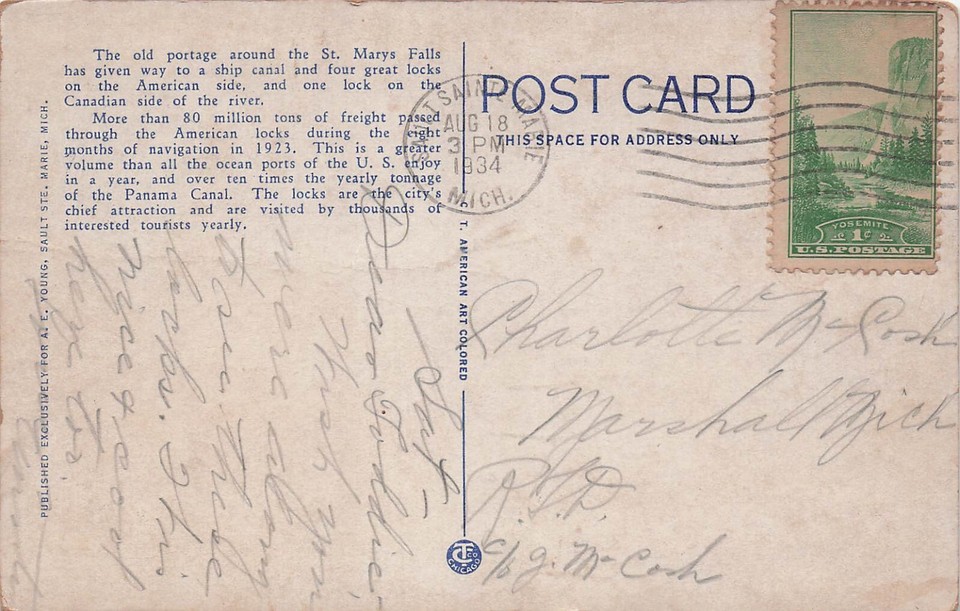 The old portage around the St. Marys Falls
has given way to a ship canal and four great locks
on the American side, and one lock on the
Canadian side of the river.
More than 80 million tons of freight passed
through the American locks during the eight
months of navigation in 1923. This is a greater
volume than all the ocean ports of the U. S. enjoy
in a year, and over ten times the yearly tonnage
of the Panama Canal. The locks are the city's
chief attraction and are visited by thousands of
interested tourists yearly.
PUBLISHED EXCLUSIVELY FOR A. E. YOUNG, SAULT STE. MARIE, MICH.
Sat—
Dear
Wish you
were along
to see these
locks.
Nice & cool
here
T. AMERICAN ART COLORED
CHICAGO
POST CARD
THIS SPACE FOR ADDRESS ONLY
SAULT SAINTE MARIE
AUG 18
3 PM
1934
MICH.
YOSEMITE
1¢
U.S. POSTAGE
Charlotte McCosh
Marshall Mich
R.F.D.
c/o J. McCosh